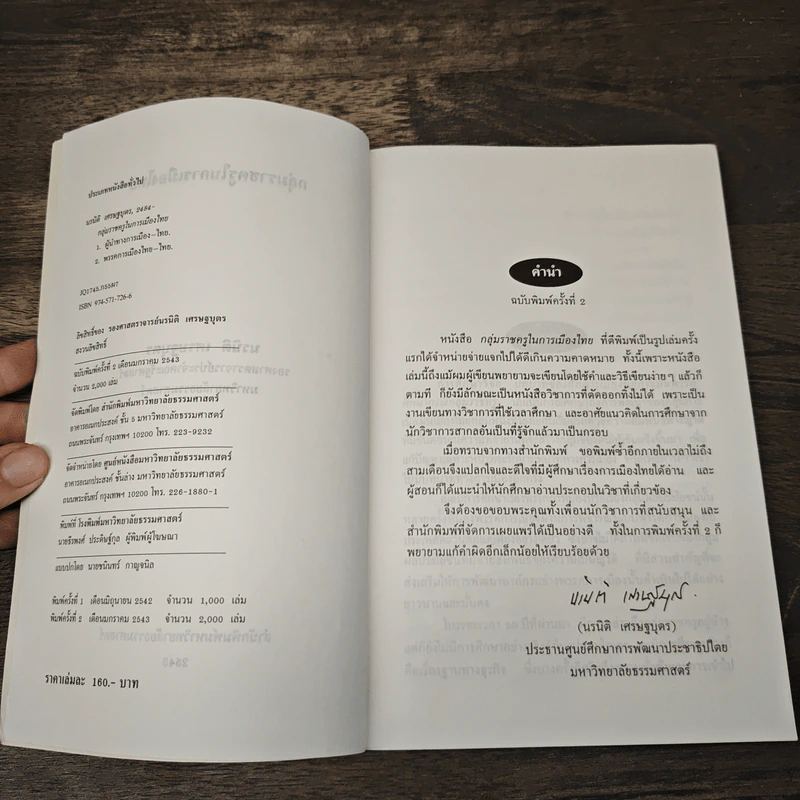 ประเภทหนังสือทั่วไป
นรนิติ เศรษฐบุตร, 2484-
กลุ่มราชครูในการเมืองไทย
1. ผู้นำทางการเมือง-ไทย.
2. พรรคการเมืองไทย-ไทย.
JQ1745.ก55ผ7
ISBN 974-571-726-6
ลิขสิทธิ์ของ รองศาสตราจารย์นรนิติ เศรษฐบุตร
สงวนลิขสิทธิ์
ฉบับพิมพ์ครั้งที่ 2 เดือนมกราคม 2543
จำนวน 2,000 เล่ม
จัดพิมพ์โดย สำนักพิมพ์มหาวิทยาลัยธรรมศาสตร์
อาคารอเนกประสงค์ ชั้น 5 มหาวิทยาลัยธรรมศาสตร์
ถนนพระจันทร์ กรุงเทพฯ 10200 โทร. 223-9232
จัดจำหน่ายโดย ศูนย์หนังสือมหาวิทยาลัยธรรมศาสตร์
อาคารอเนกประสงค์ ชั้นล่าง มหาวิทยาลัยธรรมศาสตร์
ถนนพระจันทร์ กรุงเทพฯ 10200 โทร. 226-1880-1
พิมพ์ที่ โรงพิมพ์มหาวิทยาลัยธรรมศาสตร์
นายธีรพงศ์ ประดิษฐ์กุล ผู้พิมพ์ผู้โฆษณา
แบบปกโดย นายชนินทร์ กาญจนิล
พิมพ์ครั้งที่ 1 เดือนมิถุนายน 2542 จำนวน 1,000 เล่ม
พิมพ์ครั้งที่ 2 เดือนมกราคม 2543 จำนวน 2,000 เล่ม
ราคาเล่มละ 160.- บาท
คำนำ
ฉบับพิมพ์ครั้งที่ 2
หนังสือ กลุ่มราชครูในการเมืองไทย ที่ตีพิมพ์เป็นรูปเล่มครั้ง
แรกได้จำหน่ายจ่ายแจกไปได้ดีเกินความคาดหมาย ทั้งนี้เพราะหนังสือ
เล่มนี้ถึงแม้ผมผู้เขียนพยายามจะเขียนโดยใช้คำและวิธีเขียนง่ายๆ แล้วก็
ตามที ก็ยังมีลักษณะเป็นหนังสือวิชาการที่ตัดออกทิ้งไม่ได้ เพราะเป็น
งานเขียนทางวิชาการที่ใช้เวลาศึกษา และอาศัยแนวคิดในการศึกษาจาก
นักวิชาการสากลอันเป็นที่รู้จักแล้วมาเป็นกรอบ
เมื่อทราบจากทางสำนักพิมพ์ ขอพิมพ์ซ้ำอีกภายในเวลาไม่ถึง
สามเดือนจึงแปลกใจและดีใจที่มีผู้ศึกษาเรื่องการเมืองไทยได้อ่าน และ
ผู้สอนก็ได้แนะนำให้นักศึกษาอ่านประกอบในวิชาที่เกี่ยวข้อง
จึงต้องขอขอบพระคุณทั้งเพื่อนนักวิชาการที่สนับสนุน และ
สำนักพิมพ์ที่จัดการเผยแพร่ได้เป็นอย่างดี ทั้งในการพิมพ์ครั้งที่ 2 ก็
พยายามแก้คำผิดอีกเล็กน้อยให้เรียบร้อยด้วย
นรนิติ เศรษฐบุตร
(นรนิติ เศรษฐบุตร)
ประธานศูนย์ศึกษาการพัฒนาประชาธิปไตย
มหาวิทยาลัยธรรมศาสตร์